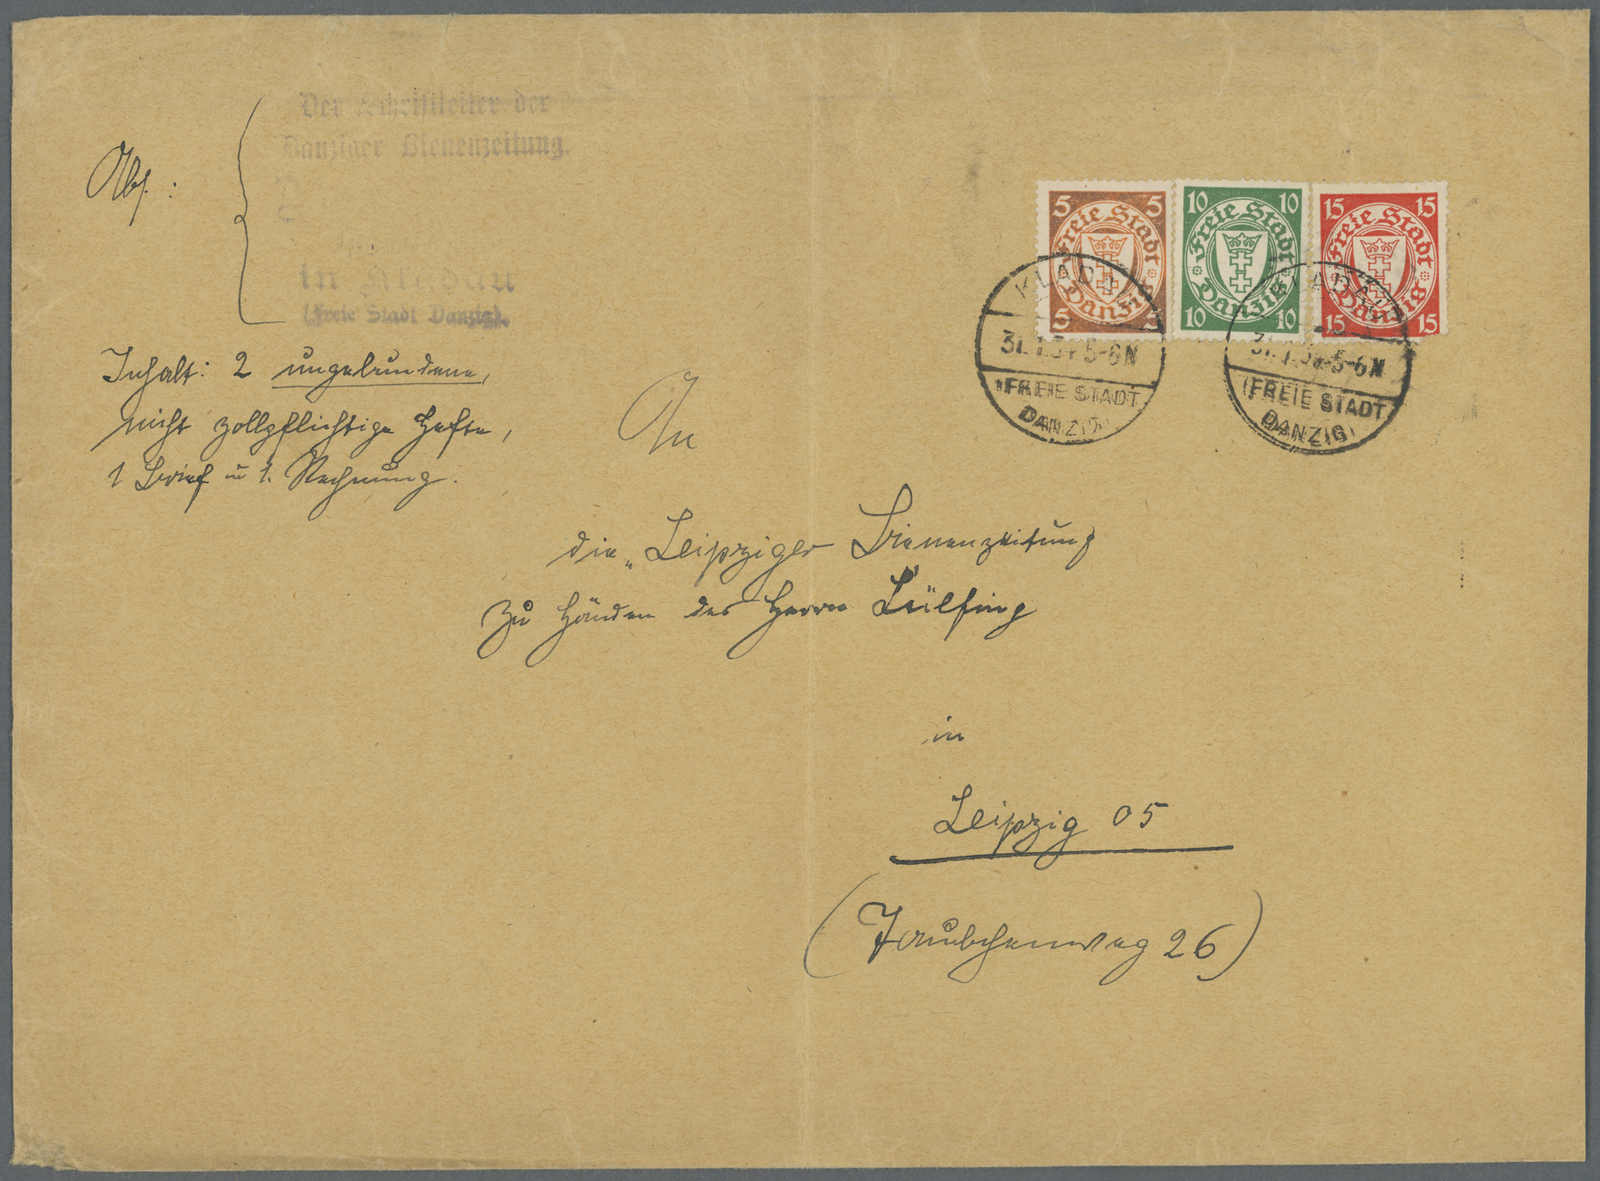 Der Schriftleiter der
Danziger Bienenzeitung.
Abs. :
in Kladau
(Freie Stadt Danzig).
Inhalt: 2 ungebundene,
nicht zollpflichtige Hefte,
1 Brief u 1. Rechnung.
5 5
Freie Stadt
Danzig
5 5
10 10
Freie Stadt
Danzig
10 10
15 15
Freie Stadt
Danzig
15 15
KLADAU
31.1.34 5-6N
(FREIE STADT
DANZIG)
KLADAU
31.1.34 5-6N
(FREIE STADT
DANZIG)
An
die „Leipziger Bienenzeitung
zu Händen des Herrn Lülfing
in
Leipzig O5
(Täubchenweg 26)